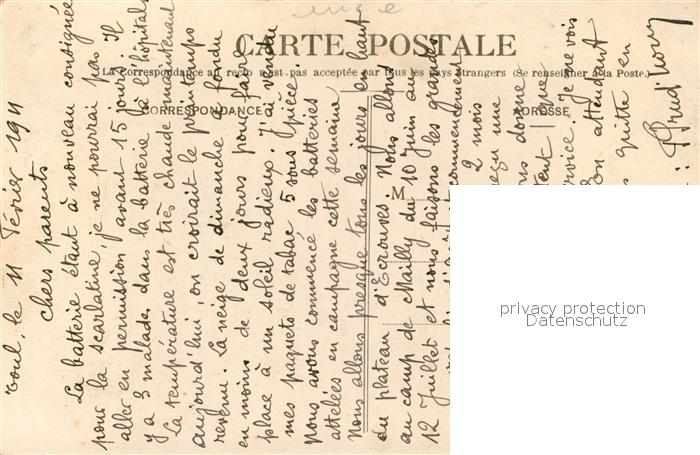 CARTE POSTALE
La correspondance au recto n'est pas acceptée par tous les pays étrangers (Se renseigner à la Poste.)
CORRESPONDANCE
ADRESSE
M
Toul, le 11 Février 1911
chers parents
La batterie étant à nouveau consignée
pour la scarlatine, je ne pourrai pas
aller en permission avant 15 jours. Il
y a 3 malades dans la batterie à l'hôpital
La température est très chaude maintenant
aujourd'hui, on croirait le printemps
revenu. La neige de dimanche a fondu
en moins de deux jours pour faire
place à un soleil radieux. J'ai vendu
mes paquets de tabac 5 sous pièce.
Nous avons commencé les batteries
attelées en campagne cette semaine
Nous allons presque tous les jours en haut
du plateau d'Ecrouves. Nous allons
au camp de Mailly du 10 Juin au
12 Juillet et nous faisons les grandes
commencement
2 mois
reçu une
donne
que
service. Je me vois
on attendant
quitte en
Prud'hom
privacy protection
Datenschutz